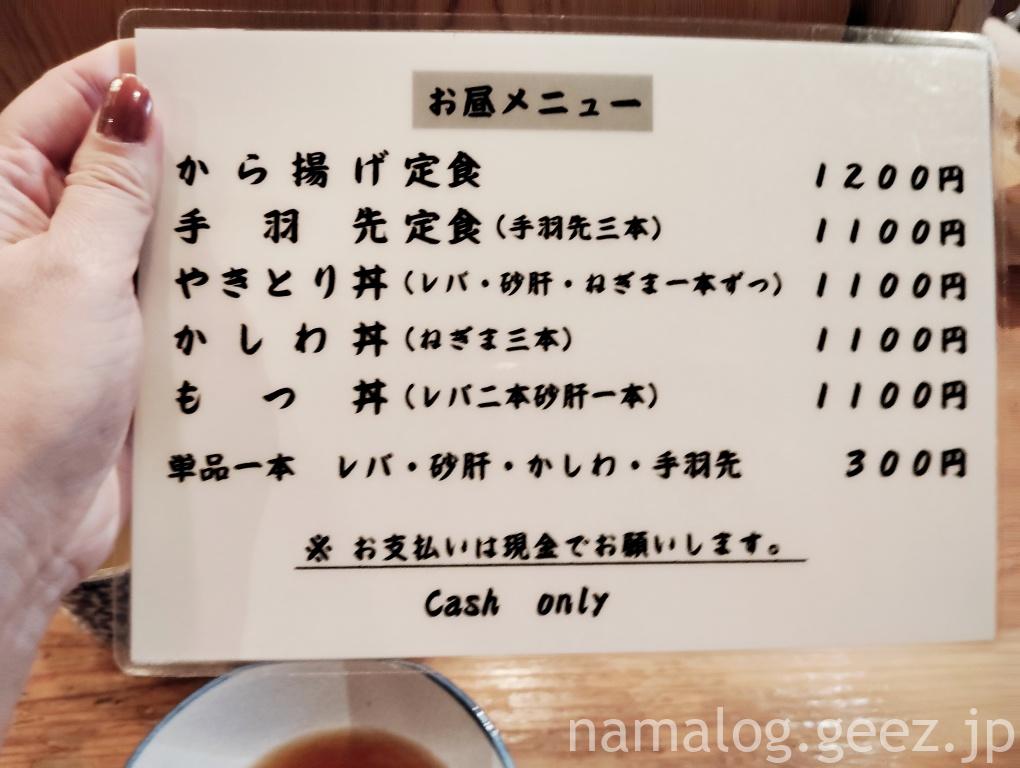 お昼メニュー
から揚げ定食 1200円
手羽先定食(手羽先三本) 1100円
やきとり丼(レバ・砂肝・ねぎま一本ずつ) 1100円
かしわ丼(ねぎま三本) 1100円
もつ丼(レバ二本砂肝一本) 1100円
単品一本 レバ・砂肝・かしわ・手羽先 300円
※ お支払いは現金でお願いします。
Cash only
namalog.geez.jp